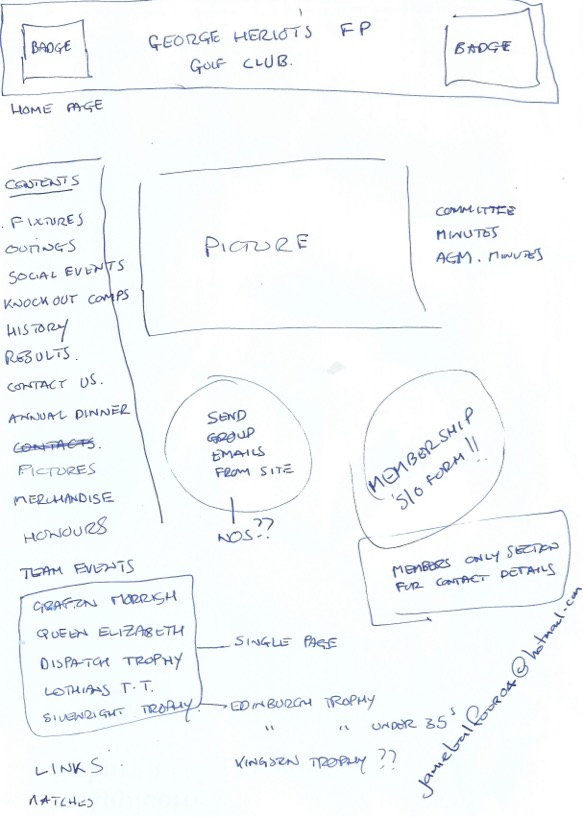 BADGE
GEORGE HERIOT'S FP
GOLF CLUB.
BADGE
HOME PAGE
CONTENTS
FIXTURES
OUTINGS
SOCIAL EVENTS
KNOCKOUT COMPS
HISTORY
RESULTS.
CONTACT US.
ANNUAL DINNER
CONTACTS.
PICTURES
MERCHANDISE
HONOURS
TEAM EVENTS
GRAFTON MORRISH
QUEEN ELIZABETH
DISPATCH TROPHY
LOTHIANS T.T.
SILVENRIGHT TROPHY
LINKS
MATCHES
PICTURE
COMMITTEE
MINUTES
AGM. MINUTES
SEND
GROUP
EMAILS
FROM SITE
NOS??
MEMBERSHIP
S/O FORM!!
MEMBERS ONLY SECTION
FOR CONTACT DETAILS
SINGLE PAGE
EDINBURGH TROPHY
" " UNDER 35s
KINGHORN TROPHY ??